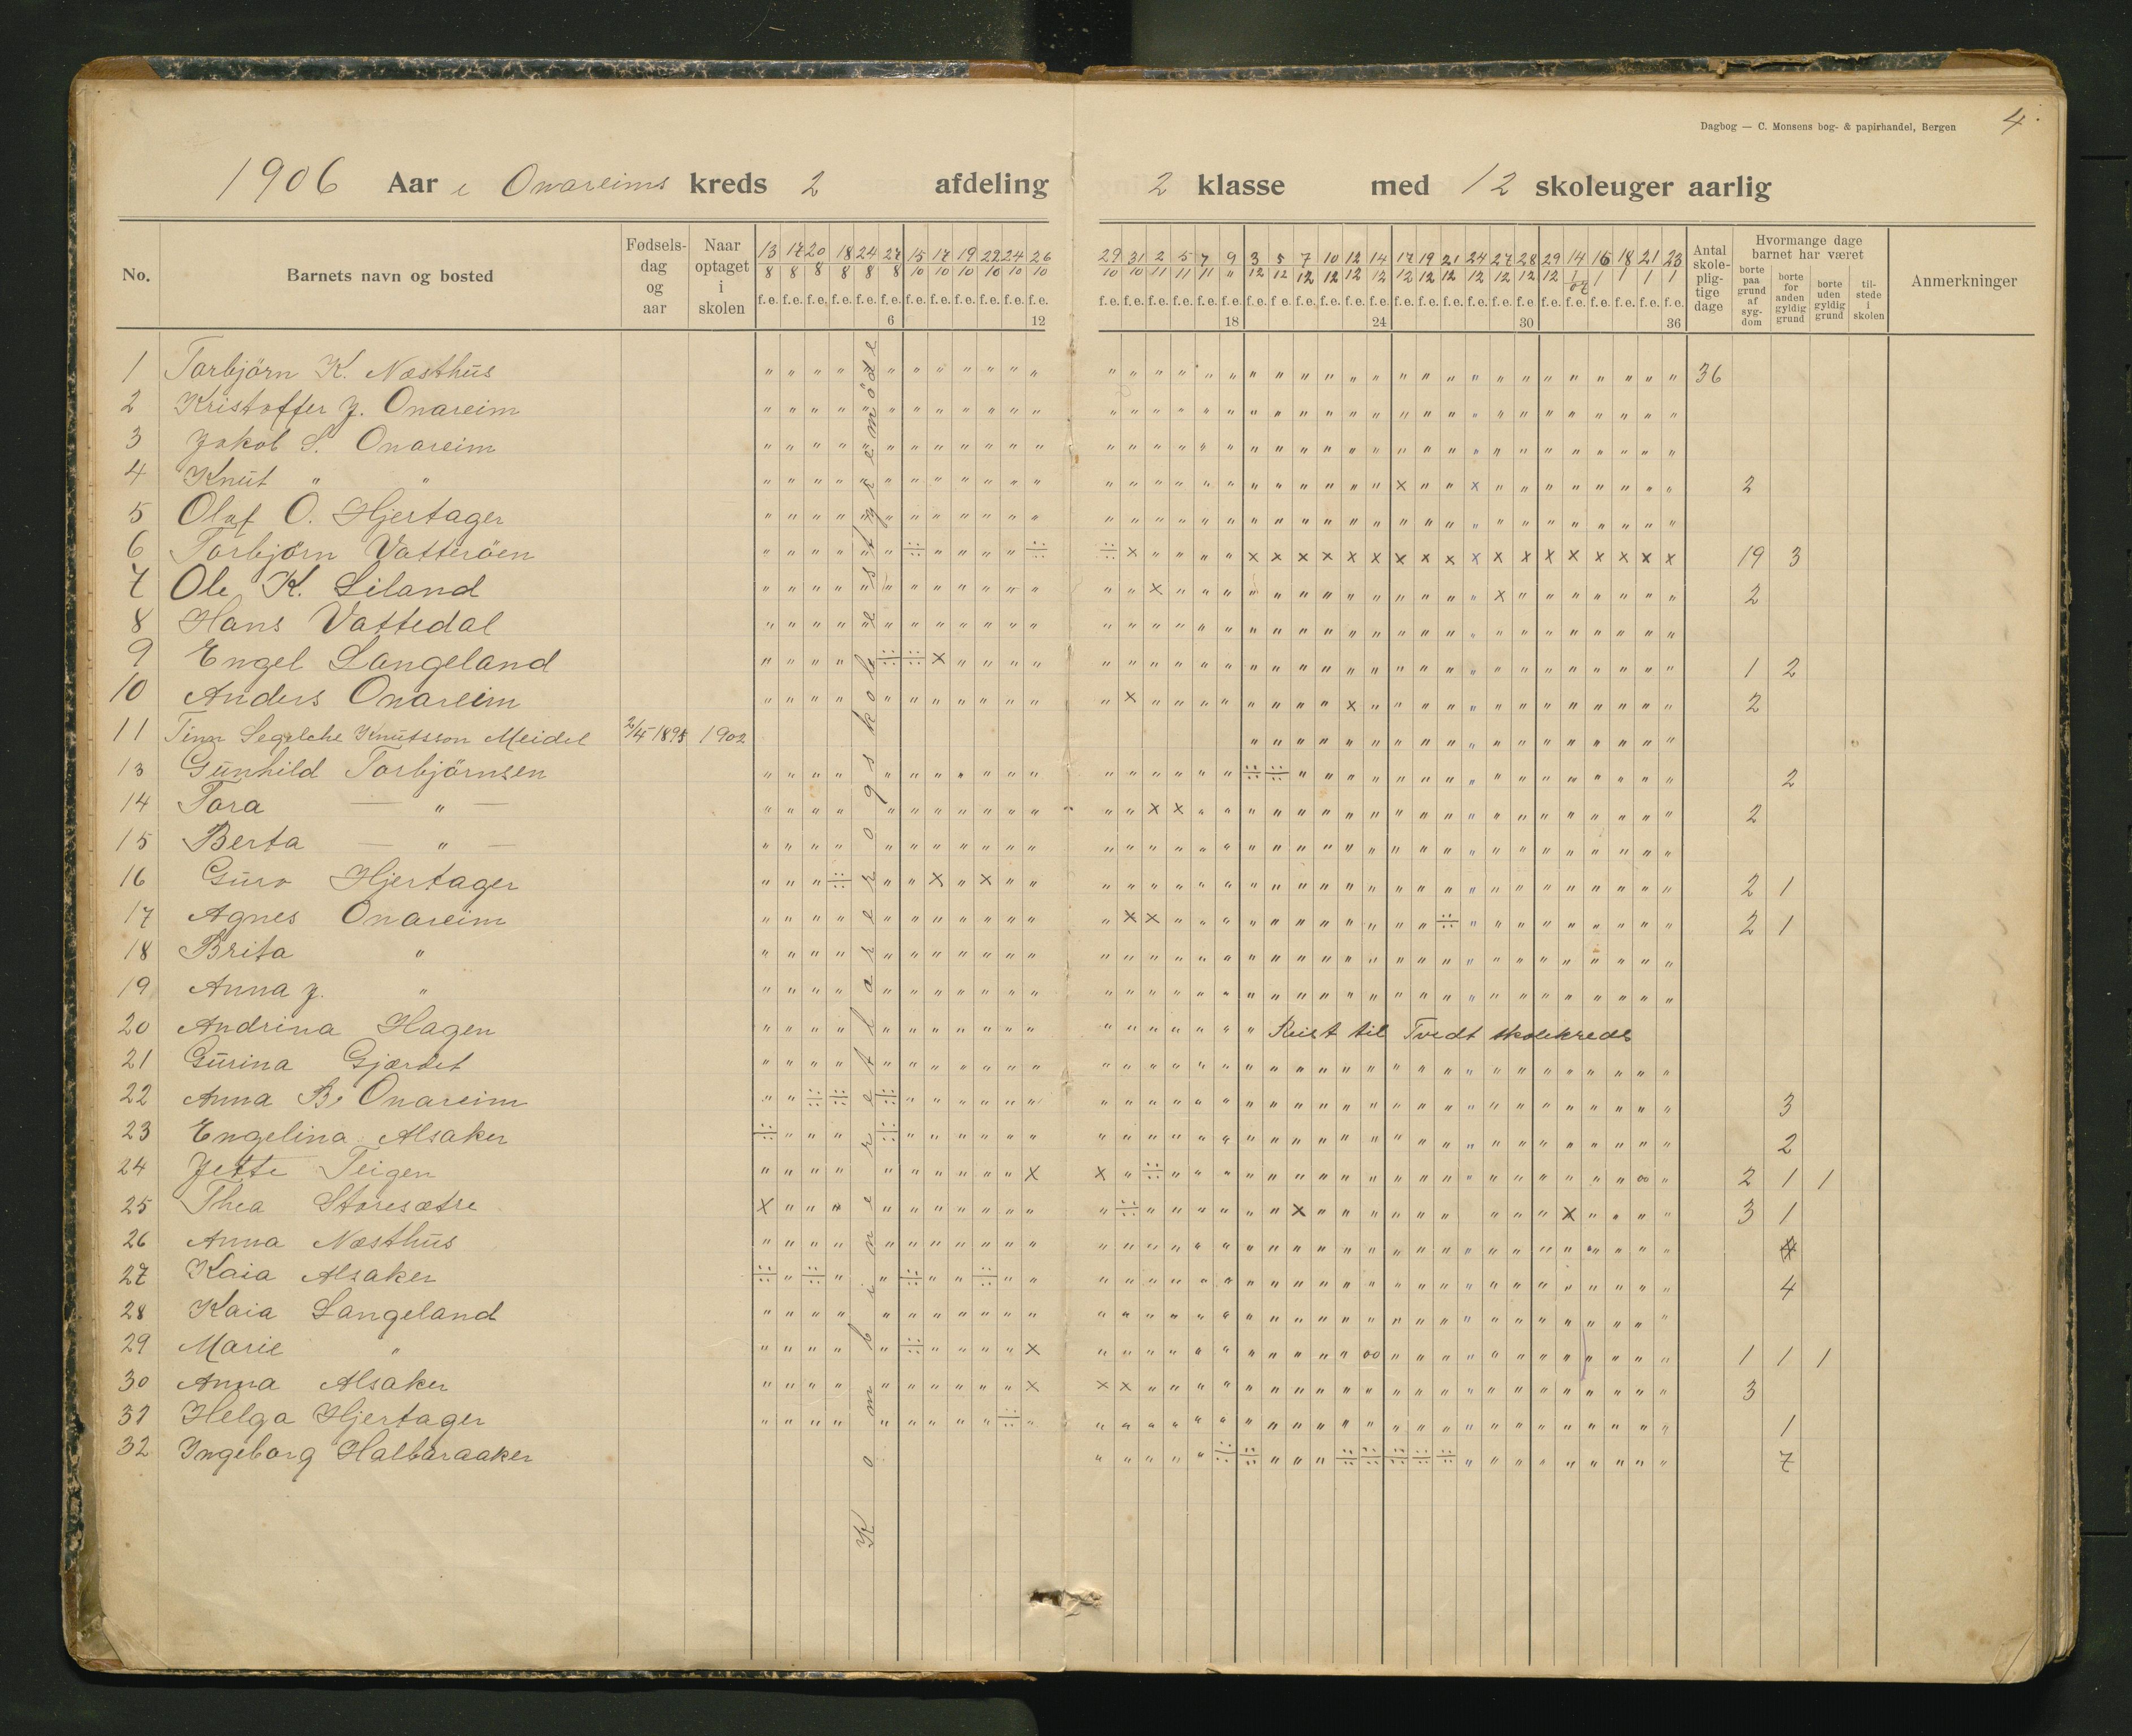 Dagbog — C. Monsens bog- & papirhandel, Bergen 4.
1906 Aar i Onareims kreds 2 afdeling 2 klasse med 12 skoleuger aarlig
No.
Barnets navn og bosted
Fødsels-dag og aar
Naar optaget i skolen
13/8 17/8 20/8 18/8 24/8 27/8 15/10 17/10 19/10 22/10 24/10 26/10
29/10 31/10 2/11 5/11 7/11 9/11 3/12 5/12 7/12 10/12 12/12 14/12 17/12 19/12 21/12 24/12 27/12 28/12 29/12 14/1 07 16/1 18/1 21/1 23/1
f.e. f.e. f.e. f.e. f.e. f.e. f.e. f.e. f.e. f.e. f.e. f.e.
f.e. f.e. f.e. f.e. f.e. f.e. f.e. f.e. f.e. f.e. f.e. f.e. f.e. f.e. f.e. f.e. f.e. f.e. f.e. f.e. f.e. f.e. f.e. f.e.
6 12 18 24 30 36
Antal skole-plig-tige dage
Hvormange dage barnet har været
borte paa grund af syg-dom
borte for anden gyldig grund
borte uden gyldig grund
til-stede i skolen
Anmerkninger
Kombineret lærer og skolestyremöde
1 Torbjörn K. Næsthus 36
2 Kristoffer J. Onareim
3 Jakob S. Onareim
4 Knut " " 2
5 Oluf O. Hjertager
6 Torbjörn Vatteröen 19 3
7 Ole K. Liland 2
8 Hans Vattedal
9 Engel Langeland 1 2
10 Anders Onareim 2
11 Tina Knutsson Meidel 2/4 1895 1902
13 Gunhild Torbjörnsen 2
14 Tora — " — 2
15 Berta — " —
16 Guro Hjertager 2 1
17 Agnes Onareim 2 1
18 Brita "
19 Anna J. "
20 Andrina Hagen Reist til Tvedt skolekreds
21 Gurina Gjærdet
22 Anna B. Onareim 3
23 Engelina Alsaker 2
24 Jette Teigen 2 1 1
25 Thea Storesætre 3 1
26 Anna Næsthus
27 Kaia Alsaker 4
28 Kaia Langeland
29 Marie " 1 1 1
30 Anna Alsaker 3
31 Helga Hjertager 1
32 Ingeborg Halbaraaker 7